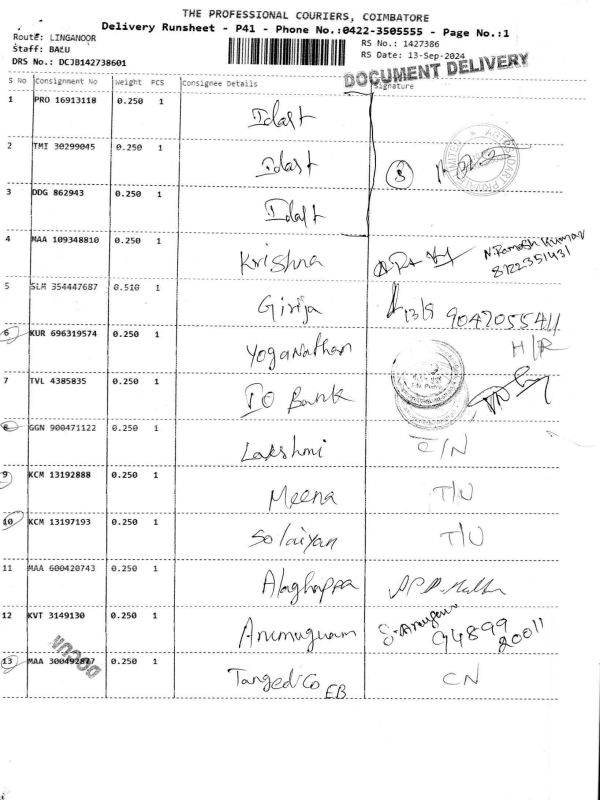 THE PROFESSIONAL COURIERS, COIMBATORE
Delivery Runsheet - P41 - Phone No.:0422-3505555 - Page No.:1
Route: LINGANOOR
Staff: BALU
DRS No.: DCJB142738601
RS No.: 1427386
RS Date: 13-Sep-2024
DOCUMENT DELIVERY
S No Consignment No Weight PCS Consignee Details Signature
1 PRO 16913118 0.250 1
2 TMI 30299045 0.250 1
3 DDG 862943 0.250 1
4 MAA 109348810 0.250 1 Krishna N. Ramesh Kumar
8122351431
5 SLM 354447687 0.510 1 Girija 13/9 9047055411
6 KUR 696319574 0.250 1 Yoganathan H/R
7 TVL 4385835 0.250 1 IO Bank
8 GGN 900471122 0.250 1 Lakshmi C/N
9 KCM 13192888 0.250 1 Meena T/U
10 KCM 13197193 0.250 1 Solaiyan T/U
11 MAA 600420743 0.250 1 Alaghappa
12 KVT 3149130 0.250 1 Arumuguam 94899
20011
13 MAA 300492877 0.250 1 TangedCo EB CN
DOCUM